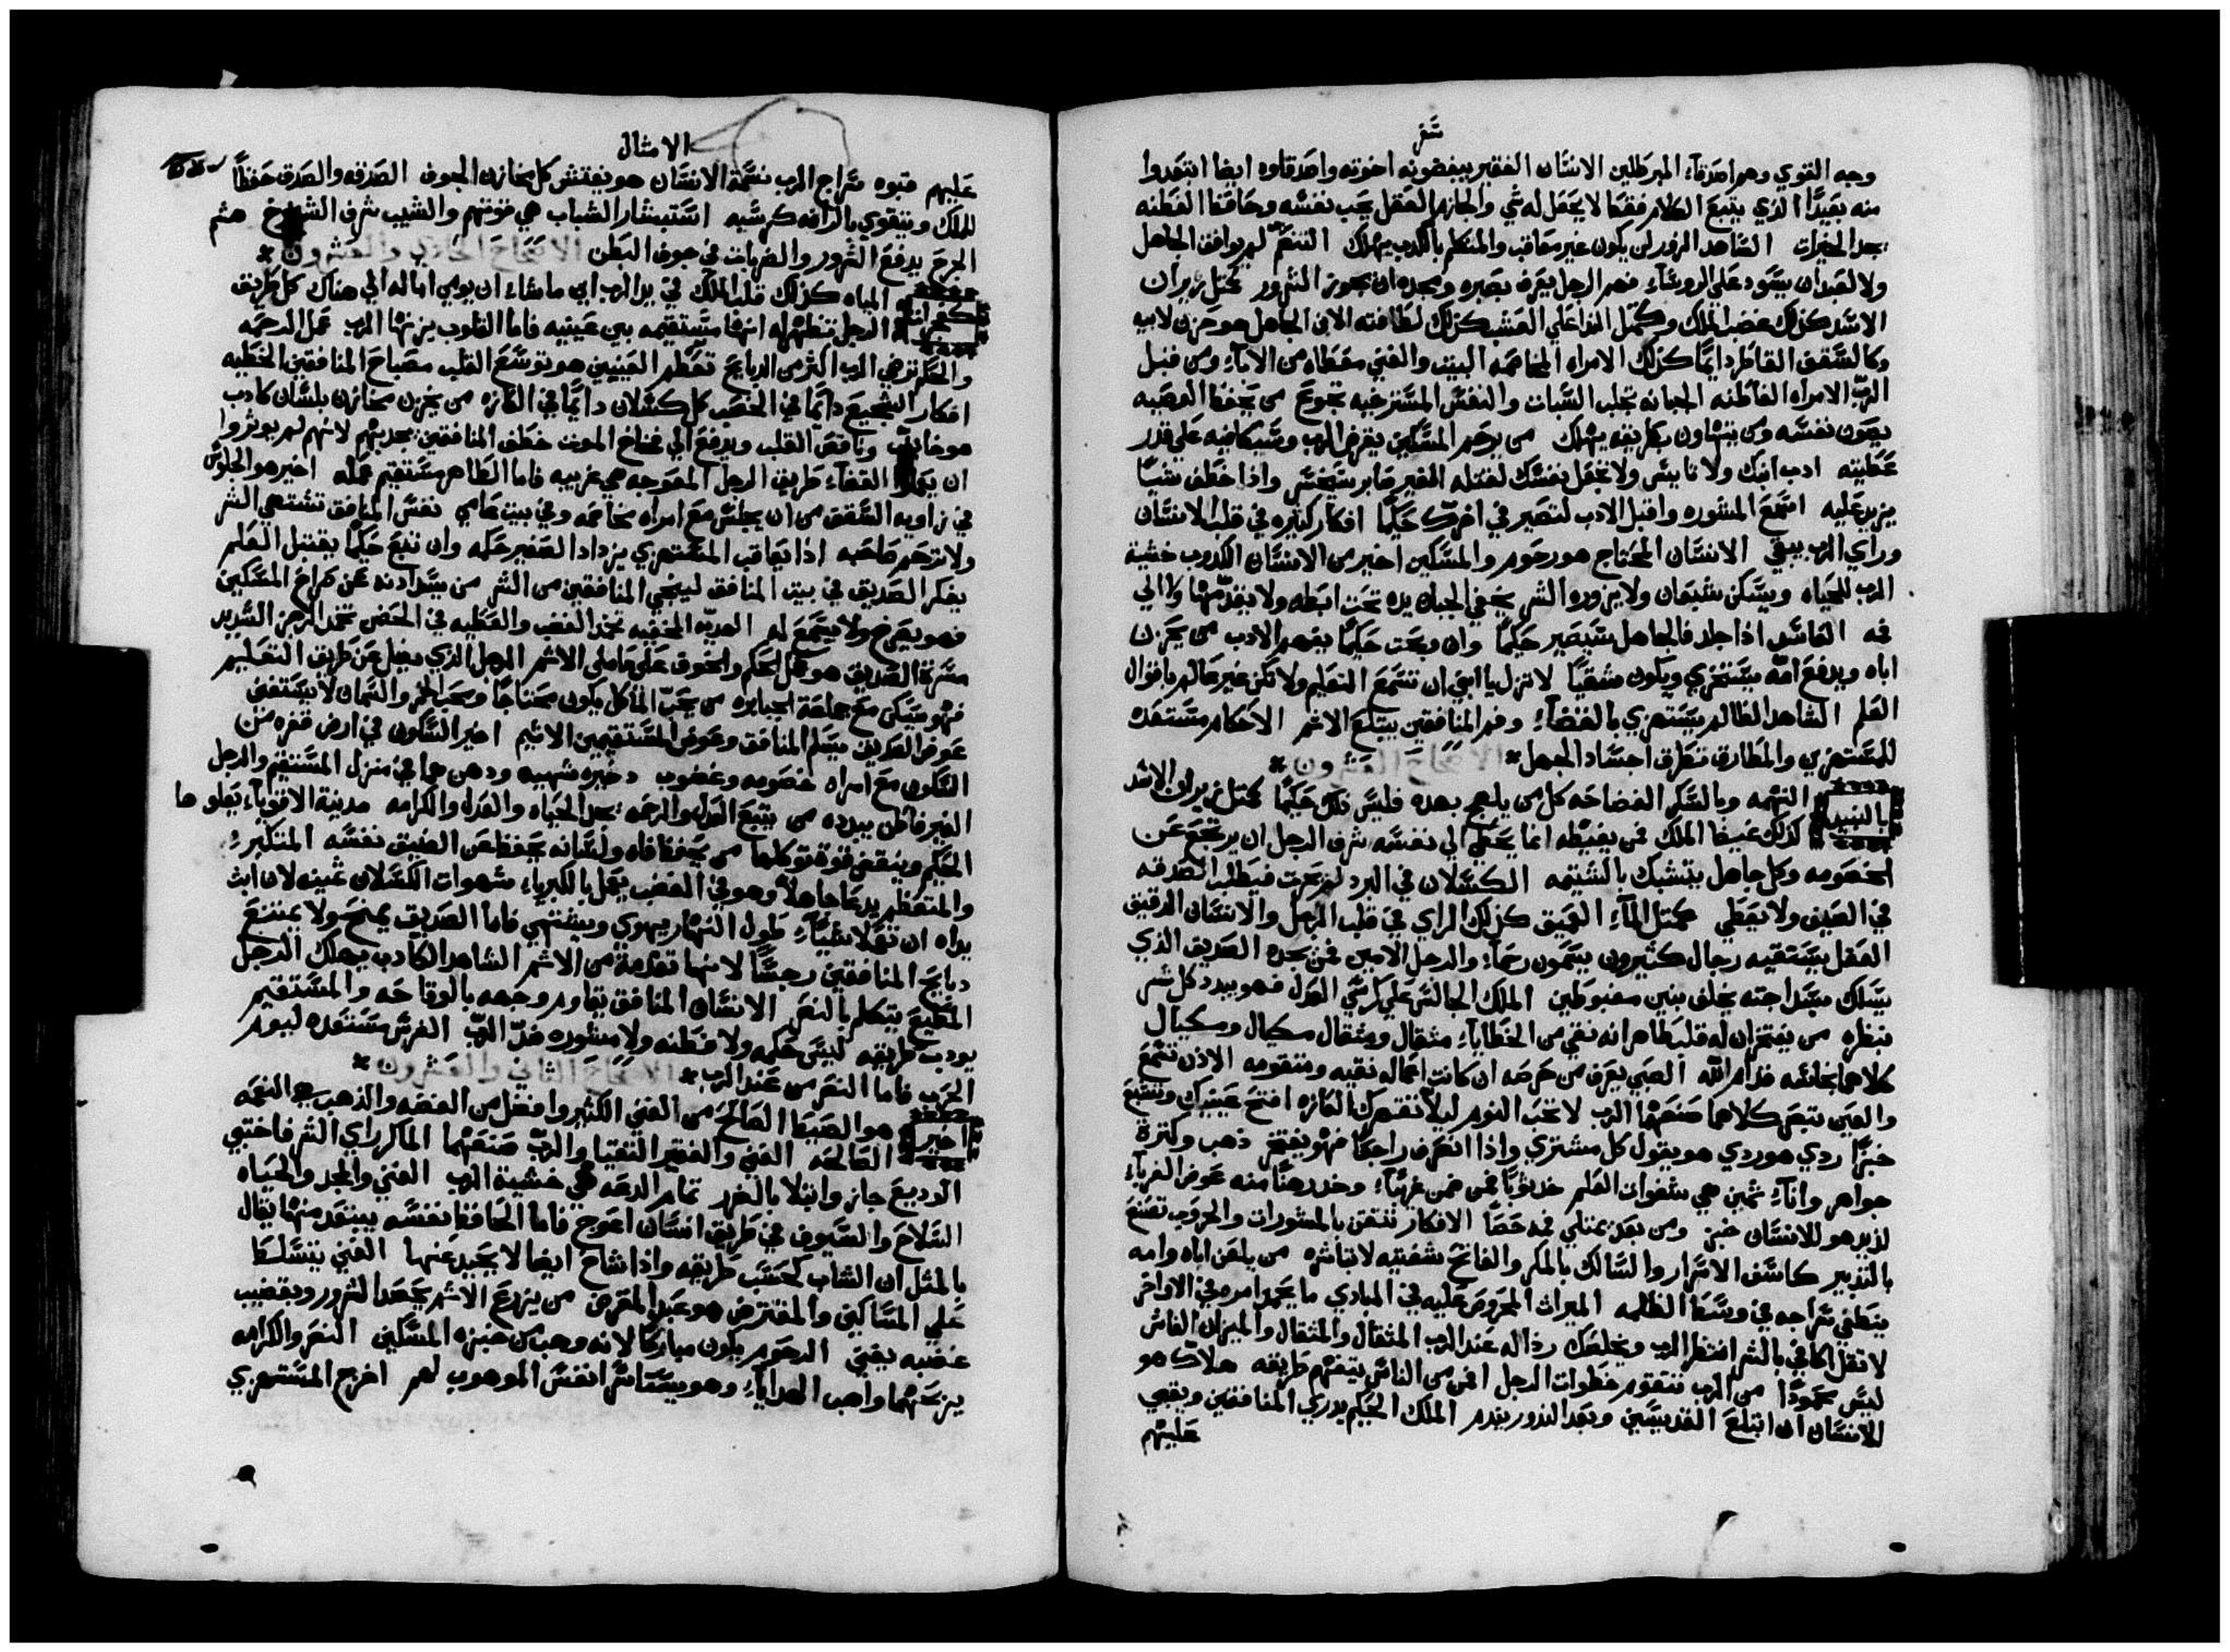 سفر
وجه القوي وهم اصدقاء المبرطلين الانسان الفقير يبغضونه اخوته واصدقاوه ايضا ابتعدوا
منه بعيدًا الذي يتبع الكلام فقط لا يحصل له شي والحازم العقل يحب نفسه وحافظ الفطنه
يجد الخيرات الشاهد الزور لن يكون غير معاقب والمتكلم بالكدب يهلك التنعم لم يوافق الجاهل
ولا لعبد ان يسود على الروساء فهم الرجل يعرف بصبره ومجده ان يجوز الشرور كمثل زيران
الاسد كذلك غضب الملك وكمثل الندا على العشب كذلك لطافته الابن الجاهل هو حزن لاب
وكالسقف القاطر دايمًا كذلك الامراه المخاصمه البيت والغني معطاه من الاباء ومن قبل
الرب الامراه الفاطنه الجبانه تجلب السبات والنفس المسترخيه تجوع من يحفظ الوصيه
يصون نفسه ومن يتهاون بطريقه يهلك من يرحم المسكين يقرض الرب وسيكافيه على قدر
عطيته ادب ابنك ولا تايس ولا تجعل نفسك لقتله الغير صابر سيخسر واذا خطف شيًا
يزيد عليه اسمع المشوره واقبل الادب لتصير في اخرتك حكيمًا افكار كثيره في قلب الانسان
وراي الرب يبقي الانسان المحتاج هو رحوم والمسكين اخير من الانسان الكدوب خشية
الرب للحياه ويسكن شبعان ولا يزوره الشر يخفي الجبان يده تحت ابطه ولا يقدمها ولا الي
فمه الفاسد اذا جلد فالجاهل سيصير حكيمًا وان وبخت حكيمًا يفهم الادب من يحزن
اباه ويدفع امه سيستخزي ويكون مشقيًا لا تزل يا ابني ان تسمع التعليم ولا تكن غير عالم باقوال
العلم الشاهد الظالم يستهزي بالقضاء وفم المنافقين يبتلع الاثم الاحكام مستعده
للمستهزي والمطارق تطرق اجساد الجهل* الاصحاح العشرون *
بالنبيد النهمه وبالسكر الفضاحه كل من يلهج بهده فليس تكن حكيمًا كمثل زيران الاسد
كذلك غضب الملك فمن يغيظه انما يخطي الي نفسه شرف الرجل ان يرتجع عن
الخصومه وكل جاهل يتشبك بالشتيمه الكسلان في البرد لم يحرت فيطلب الصدقه
في الصيف ولا يعطي كمثل الماء العميق كذلك الراي في قلب الرجل والانسان الدقيق
العقل يستقيه رجال كثيرون يسمون رحماء والرجل الامين فمن يجده الصديق الذي
يسلك بسداجته يخلف بنين مغبوطين الملك الجالس على كرسي العدل فهو يبدد كل شر
بنظره من يفتخر ان له قلب طاهر انه نقي من الخطاياء مثقال ومثقال مكيال ومكيال
كلاهما نجاسه قدام الله الصبي يعرف من حرصه ان كانت اعماله نقيه ومتقومه الاذن تسمع
والعين تبصر كلاهما صنعهما الرب لا تحب النوم ليلا تقهرك الفازه افتح عينيك وتشبع
خبزًا ردي هو ردي هو يقول كل مشتري واذا انصرف راجعًا فهو يفتخر ذهب وكثرة
جواهر واناء ثمين هي شفوات العلم خد ثوبًا ممن ضمن غريبًا وخد رهنًا منه عوض الغرباء
لذيد هو للانسان خبز ومن بعد يمتلي فمه حصًا الافكار تتقن بالمشورات والحروب تصنع
بالتدبير كاشف الاسرار والسالك بالمكر والفاتح شفتيه لا تباشره من يلعن اباه وامه
ينطفي سراجه في وسط الظلمه الميراث المحروص عليه في المبادي ما يحمد امره في الاواخر
لا تقل اكافي بالشر انتظر الرب ويخلصك رذاله عند الرب المثقال والمثقال والميزان الغاش
ليس محمودًا من الرب تتقوم خطوات الرجل فمن من الناس يتفهم طريقه هلاك هو
للانسان ان ابتلع القديسين وبعد الندور يندم الملك الحكيم يدري المنافقين ويقبي
عليهم
الامثال
عليهم قبوه سراج الرب نسمة الانسان هو يفتش كل مخازن الجوف الصدقه والصدق حفظًا
للملك ويتقوي بالرافه كرسيه استبشار الشباب هي قوتهم والشيب شرف الشيوخ هشم
الجرح يدفع الشرور والضربات في جوف البطن الاصحاح الحادي والعشرون *
كغمرات المياه كذلك قلب الملك في يد الرب اين ما شاء ان يومي اماله الي هناك كل طريق
الرجل تنظهر له انها مستقيمه بين عينيه فاما القلوب يزنها الرب عمل الرحمه
والحكم ترضي الرب اكثر من الدبايح تعظم العينين هو توسع القلب مصباح المنافقين الخطيه
افكار الشجيع دايمًا في الخصب كل كسلان دايمًا في الفازه من يخزن مخازن بلسان كادب
هو خايب وناقص القلب ويدفع الي فخاخ الموت خطف المنافقين يجدبهم لانهم لم يوثروا
ان يعملوا القضاء طريق الرجل المعوجه هي غريبه فاما الطاهر مستقيم عمله اخير هو الجلوس
في زاويه السقف من ان يجلس مع امراه مخاصمه وفي بيت عامي نفس المنافق تشتهي الشر
ولا ترحم صاحبه اذا يعاقب المستهزي يزداد الصغير حكمه وان تبع حكيمًا يقتبل العلم
يفكر الصديق في بيت المنافق لينجي المنافقين من الشر من يسد ادنه عن صراخ المسكين
فهو يصرخ ولا يسمع له الهديه المخفيه تخمد الغضب والعطيه في الحضن تخمد الرجز الشديد
مسرة الصديق هو عمل الحكم والخوف على عاملي الاثم الرجل الذي يضل عن طريق التعليم
فهو يسكن مع جماعة الجبابره من يحب الماكل يكون محتاجًا ومحب الخمر والسمان لا يستغني
عوض الصديق يسلم المنافق وعوض المستقيمين الاثيم اخير السكون في ارض قفره من
السكون مع امراه خصومه وغضوب دخيره شهيه ودهن هما في منزل المستقيم والرجل
الغير فاطن يبدده من يتبع العدل والرحمه يجد الحياه والعدل والكرامه مدينة الاقوياء يعلوها
الحكيم وينقض قوة توكلها من يحفظ فاه ولسانه يحفظ من الضيق نفسه المتكبر
والمتعظم يدعا جاهلاً وهو في الغضب يعمل بالكبرياء شهوات الكسلان تميته لان ابت
يداه ان تعملا شيًا طول النهار يهوي ويشتهي فاما الصديق يمنح ولا يمتنع
دبايح المنافقين رجسًا لانها تقدمة من الاثم الشاهد الكادب يهلك الرجل
المطيع يتكلم بالنصر الانسان المنافق يقاوم وجهه بالوقاحه والمستقيم
يودب طريقه ليس حكمه ولا فطنه ولا مشوره ضد الرب الفرس مستعده ليوم
الحرب فاما النصر من عند الرب* الاصحاح الثاني والعشرون *
اخير هو الصيت الصالح من الغني الكثير وافضل من الفضه والذهب هي النعمه
الصالحه الغني والفقير التقيا والرب صنعهما الماكر راي الشر فاختبي
الوديع جاز وابتلا بالضرر تمام الدعه هي خشية الرب الغني والمجد والحياه
السلاح والسيوف في طريق انسان اعوج فاما الحافظ نفسه يبتعد منها يقال
بالمثل ان الشاب كحسب طريقه واذا شاخ ايضا لا يحيد عنها الغني يتسلط
علي المساكين والمقترض هو عبد المقرض من يزرع الاثم يحصد الشرور وبقضيب
غضبه يفني الرحوم يكون مباركًا لانه وهب من خبزه المسكين النصر والكرامه
يزجهما واهب الهدايا وهو يستاسر انفس الموهوب لهم اخرج المستهزي